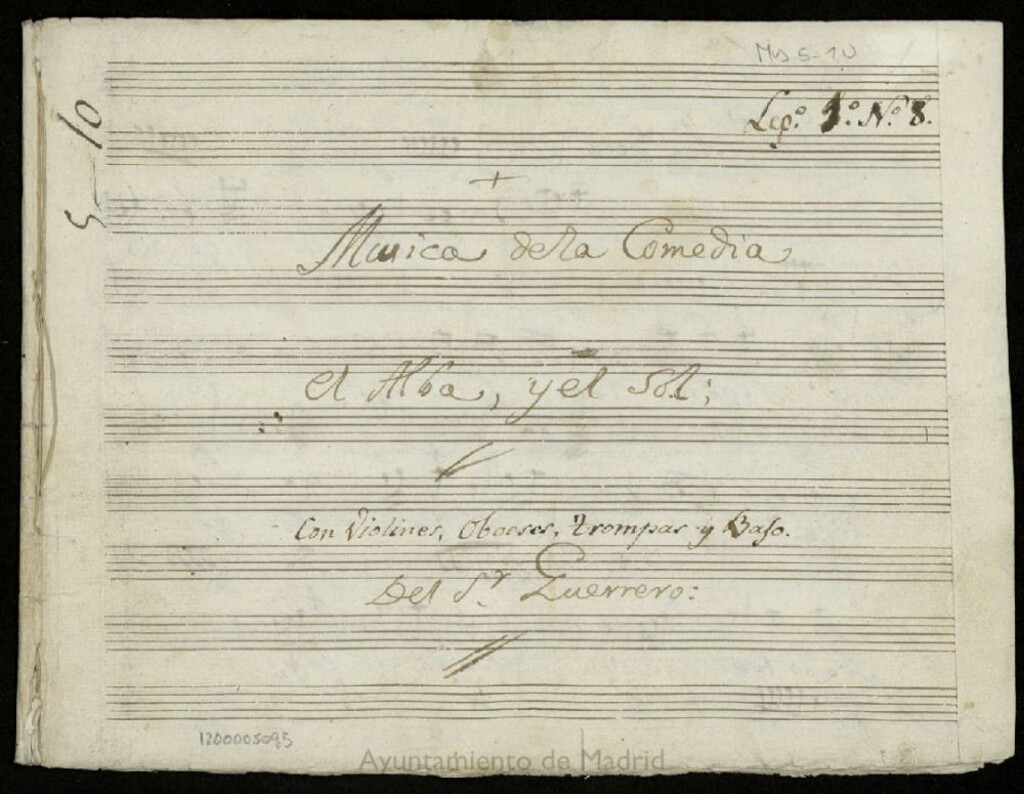 Mus 5-10
Leg.º 1.º N.º 8.
5-10
+
Musica de la Comedia
el Alba, y el Sol;
Con Violines, Oboeses, trompas y Bajo.
Del S.r Guerrero:
1200005095
Ayuntamiento de Madrid